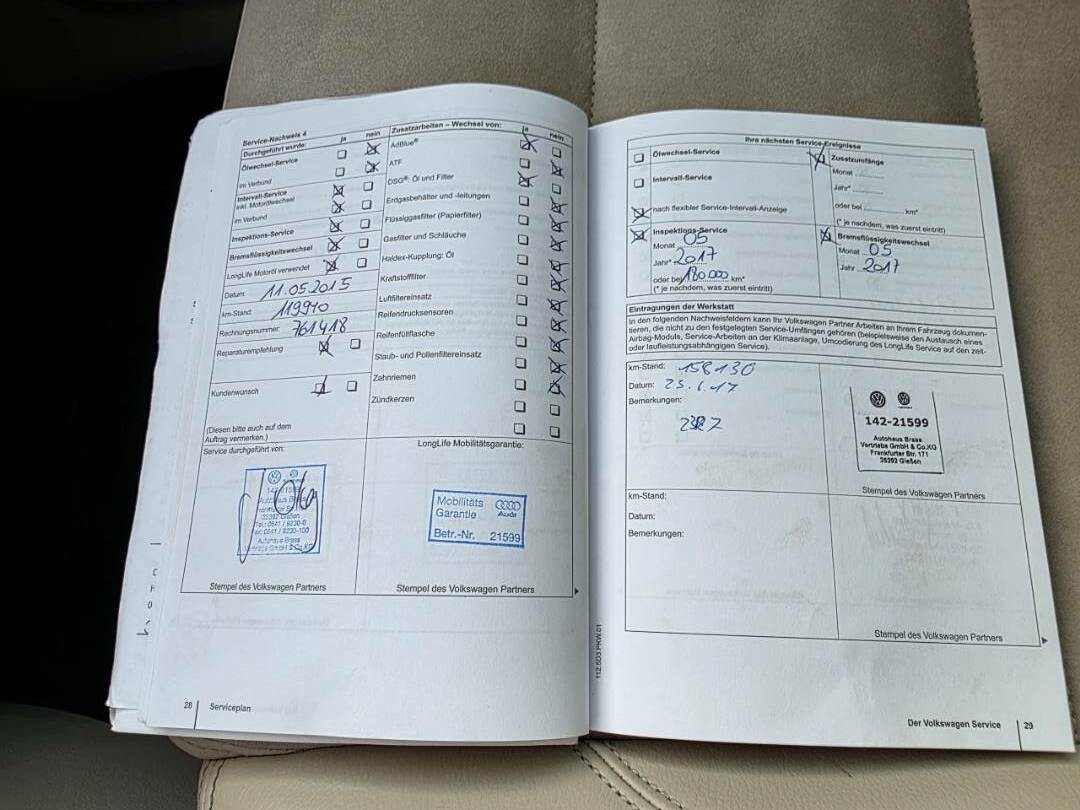 Service-Nachweis 4
Durchgeführt wurde: ja nein
Ölwechsel-Service
im Verbund
Intervall-Service
inkl. Motorölwechsel
im Verbund
Inspektions-Service
Bremsflüssigkeitswechsel
LongLife Motoröl verwendet
Datum: 11.05.2015
km-Stand: 119910
Rechnungsnummer: 761418
Reparaturempfehlung
Kundenwunsch
(Diesen bitte auch auf dem
Auftrag vermerken.)
Zusatzarbeiten – Wechsel von: ja nein
AdBlue®
ATF
DSG®: Öl und Filter
Erdgasbehälter und -leitungen
Flüssiggasfilter (Papierfilter)
Gasfilter und Schläuche
Haldex-Kupplung: Öl
Kraftstofffilter
Luftfiltereinsatz
Reifendrucksensoren
Reifenfüllflasche
Staub- und Pollenfiltereinsatz
Zahnriemen
Zündkerzen
Service durchgeführt von:
35392 Gießen
Tel.: 0641 / 9230-0
Fax: 0641 / 9230-100
Autohaus Brass
Vertriebs GmbH & Co.KG
Stempel des Volkswagen Partners
LongLife Mobilitätsgarantie:
Mobilitäts
Garantie
Audi
Betr.-Nr. 21599
Stempel des Volkswagen Partners
28 Serviceplan
112.5D3.PKW.01
Ihre nächsten Service-Ereignisse
Ölwechsel-Service
Intervall-Service
nach flexibler Service-Intervall-Anzeige
Zusatzumfänge
Monat
Jahr*
oder bei km*
(* je nachdem, was zuerst eintritt)
Inspektions-Service
Monat 05
Jahr* 2017
oder bei 180000 km*
(* je nachdem, was zuerst eintritt)
Bremsflüssigkeitswechsel
Monat 05
Jahr 2017
Eintragungen der Werkstatt
In den folgenden Nachweisfeldern kann Ihr Volkswagen Partner Arbeiten an Ihrem Fahrzeug dokumen-
tieren, die nicht zu den festgelegten Service-Umfängen gehören (beispielsweise den Austausch eines
Airbag-Moduls, Service-Arbeiten an der Klimaanlage, Umcodierung des LongLife Service auf den zeit-
oder laufleistungsabhängigen Service).
km-Stand: 158130
Datum:
Bemerkungen:
142-21599
Autohaus Brass
Vertriebs GmbH & Co.KG
Frankfurter Str. 171
35392 Gießen
Stempel des Volkswagen Partners
km-Stand:
Datum:
Bemerkungen:
Stempel des Volkswagen Partners
Der Volkswagen Service 29